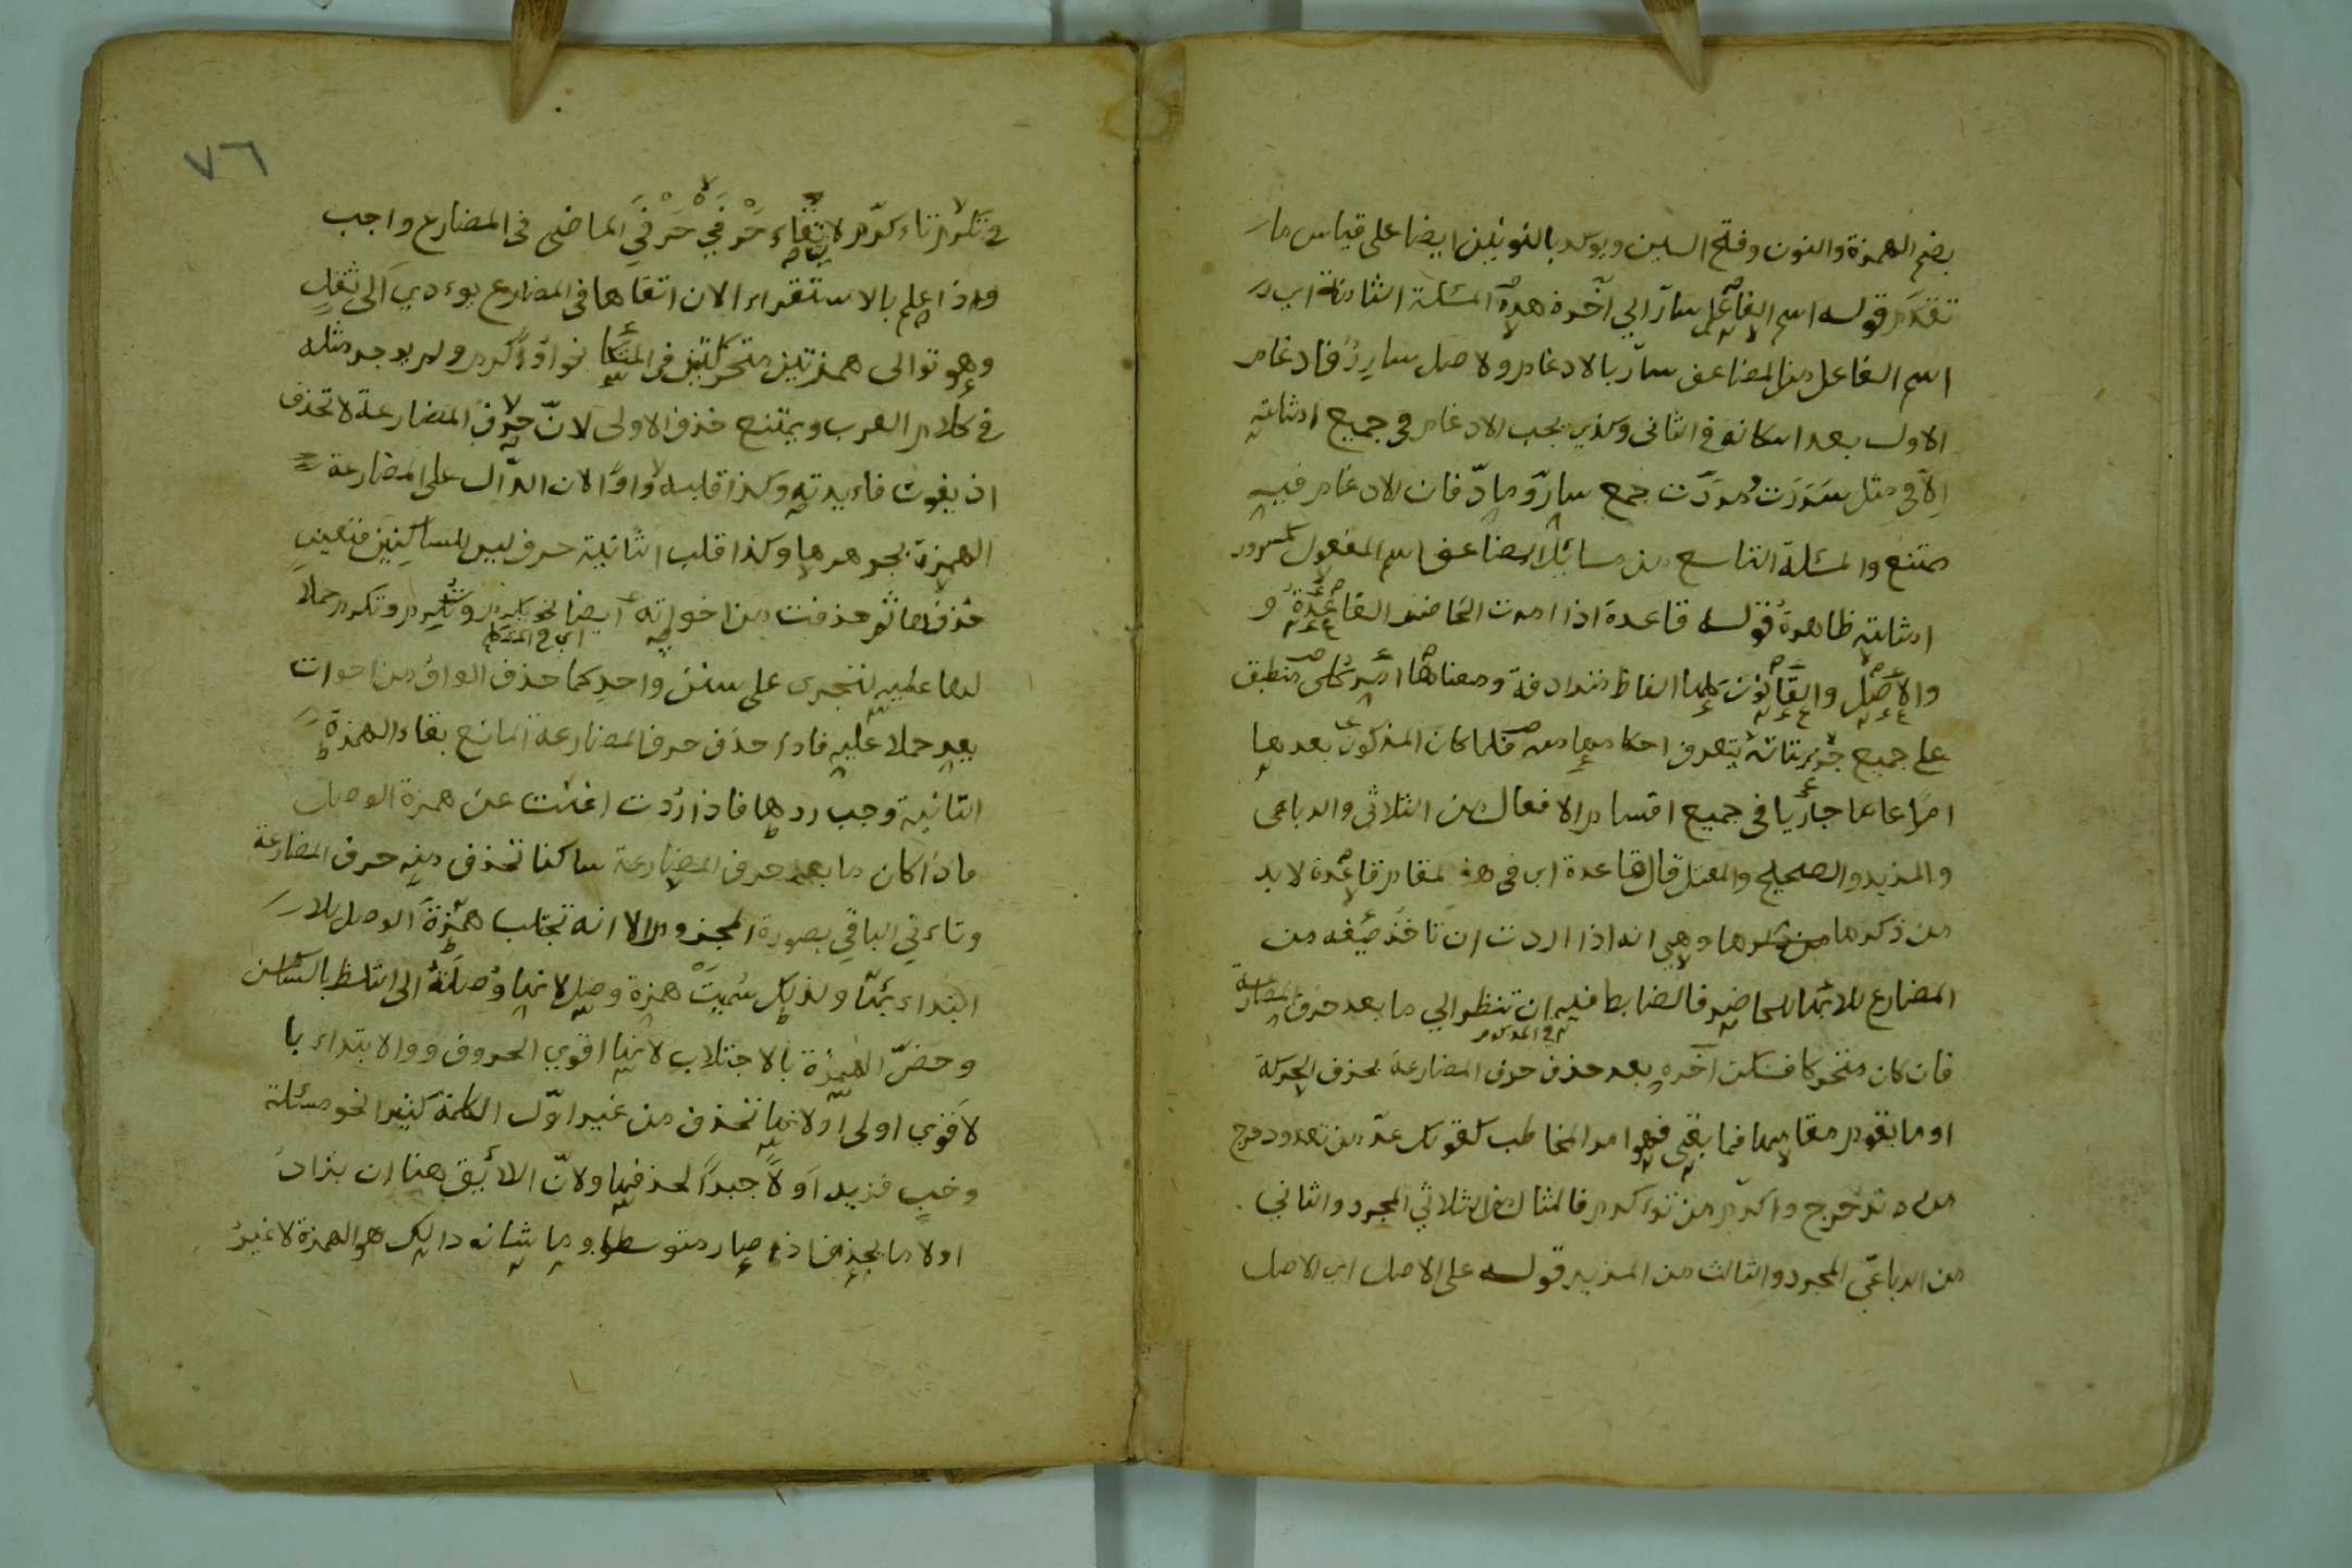 بضم الهمزة والنون وفتح السين ويوكد بالنونين ايضا على قياس ما
تقدم قوله اسم الفاعل سارّ الي آخره هذه المسئلة الثامنة اي
اسم الفاعل من المضاعف سارّ بالادغام ولاصل سارِرٌ فادغام
الاول بعد اسكانه في الثانى وكذي يجب الادغام في جميع امثلته
الّا في مثل سَرَرَت ومرَدَت جمع سارّ ومادّ فان الادغام فيه
ممتنع والمسئلة التاسع من مسائل المضاعف اسم المفعول كمسرور
امثلته ظاهرة قوله قاعدة اذا امرت الحاضر القاعدة و
والاصل والقانون كلها الفاظ متدادفة ومعناها امر كلى منطبق
على جميع جزئياته يتعرف احكامها منه فلما كان المذكور بعدها
امرا عاما جاريا في جميع اقسام الافعال من الثلاثي والرباعى
والمزيد والصحيح والمعتل قال قاعدة اى في هذ لمقام قاعدة لا بد
من ذكرها وهي انه اذا اردت ان تاخذ صيغه من
المضارع للامر للحاضر فالضابط فيه ان تنظر الي ما بعد حرف المضارعة
فان كان متحركا فسكن آخره بعد حذف حرف المضارعة بحذف الحركة
او ما يقوم مقامها فما بقى فهو امر المخاطب كقولك عد من تعد ودحرج
من تدحرج واكرم من تؤكرم فالمثال من الثلاثي المجرد والثاني
من الرباعيّ المجرد والثالث من المزيد قوله على الاصل اى الاصل
٧٦
في تكرم تاء كرم لاتقاء حرفي حرفي الماضى فى المضارع واجب
واذا علم بالاستقراء الان اتقاها في المضارع يوءدي الى ثقل
وهو توالى همزتين متحركتين في المتكلم نحو اؤكرم ولم يوجد مثله
في كلام العرب ويمتنع حذف الاولى لانّ حرف المضارعة لا تحذف
اذ يفوت فاءيدته وكذا قلبه واوًا لان الدّال على المضارعة
الهمزة بجوهرها وكذا قلب الثانية حرف لين للساكنين فتعين
حذفها ثم حذفت من اخواته ايضا نحو يكرم وتكرم ونكرم حملا
اى في المتكلم
لها عليه لتجرى على سنن واحد كما حذف الواو من اخوات
يعد حملا عليه فاذا حذف حرف المضارعة المانع بقاء الهمزة
الثانية وجب ردها فاذا رُدت اغنت عن همزة الوصل
ماذا كان ما بعد حرف المضارعة ساكنا تحذف منه حرف المضارعة
وتاءتي الباقي بصورة المجزوم الا انه تجتلب همزة الوصل للا
ابتداء بها ولذلك سُمِيتْ همزة وصل لانها وُصلة الى التلفظ بالساكن
وخصّ الهمزة بالاجتلاب لانها اقوي الحروف ووالابتداء با
لاقوي اولى اولانها تحذف من غير اوّل الكلمة كثيرا نحو مسئلة
وخبٍ فزيد اوّلا جبرًا لحذفها ولانّ الاليق هنا ان يزاد
اولا ما يحذف اذا صار متوسطا وما شانه ذالك هو الهمزة لا غير